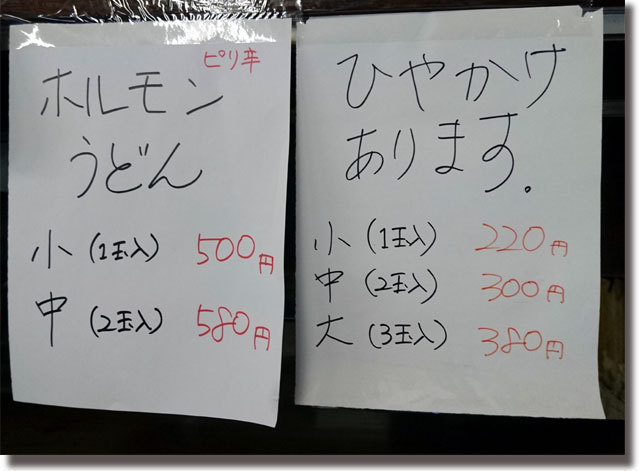 ピリ辛
ホルモン
うどん
小 (1玉入) 500円
中 (2玉入) 580円
ひやかけ
あります。
小 (1玉入) 220円
中 (2玉入) 300円
大 (3玉入) 380円